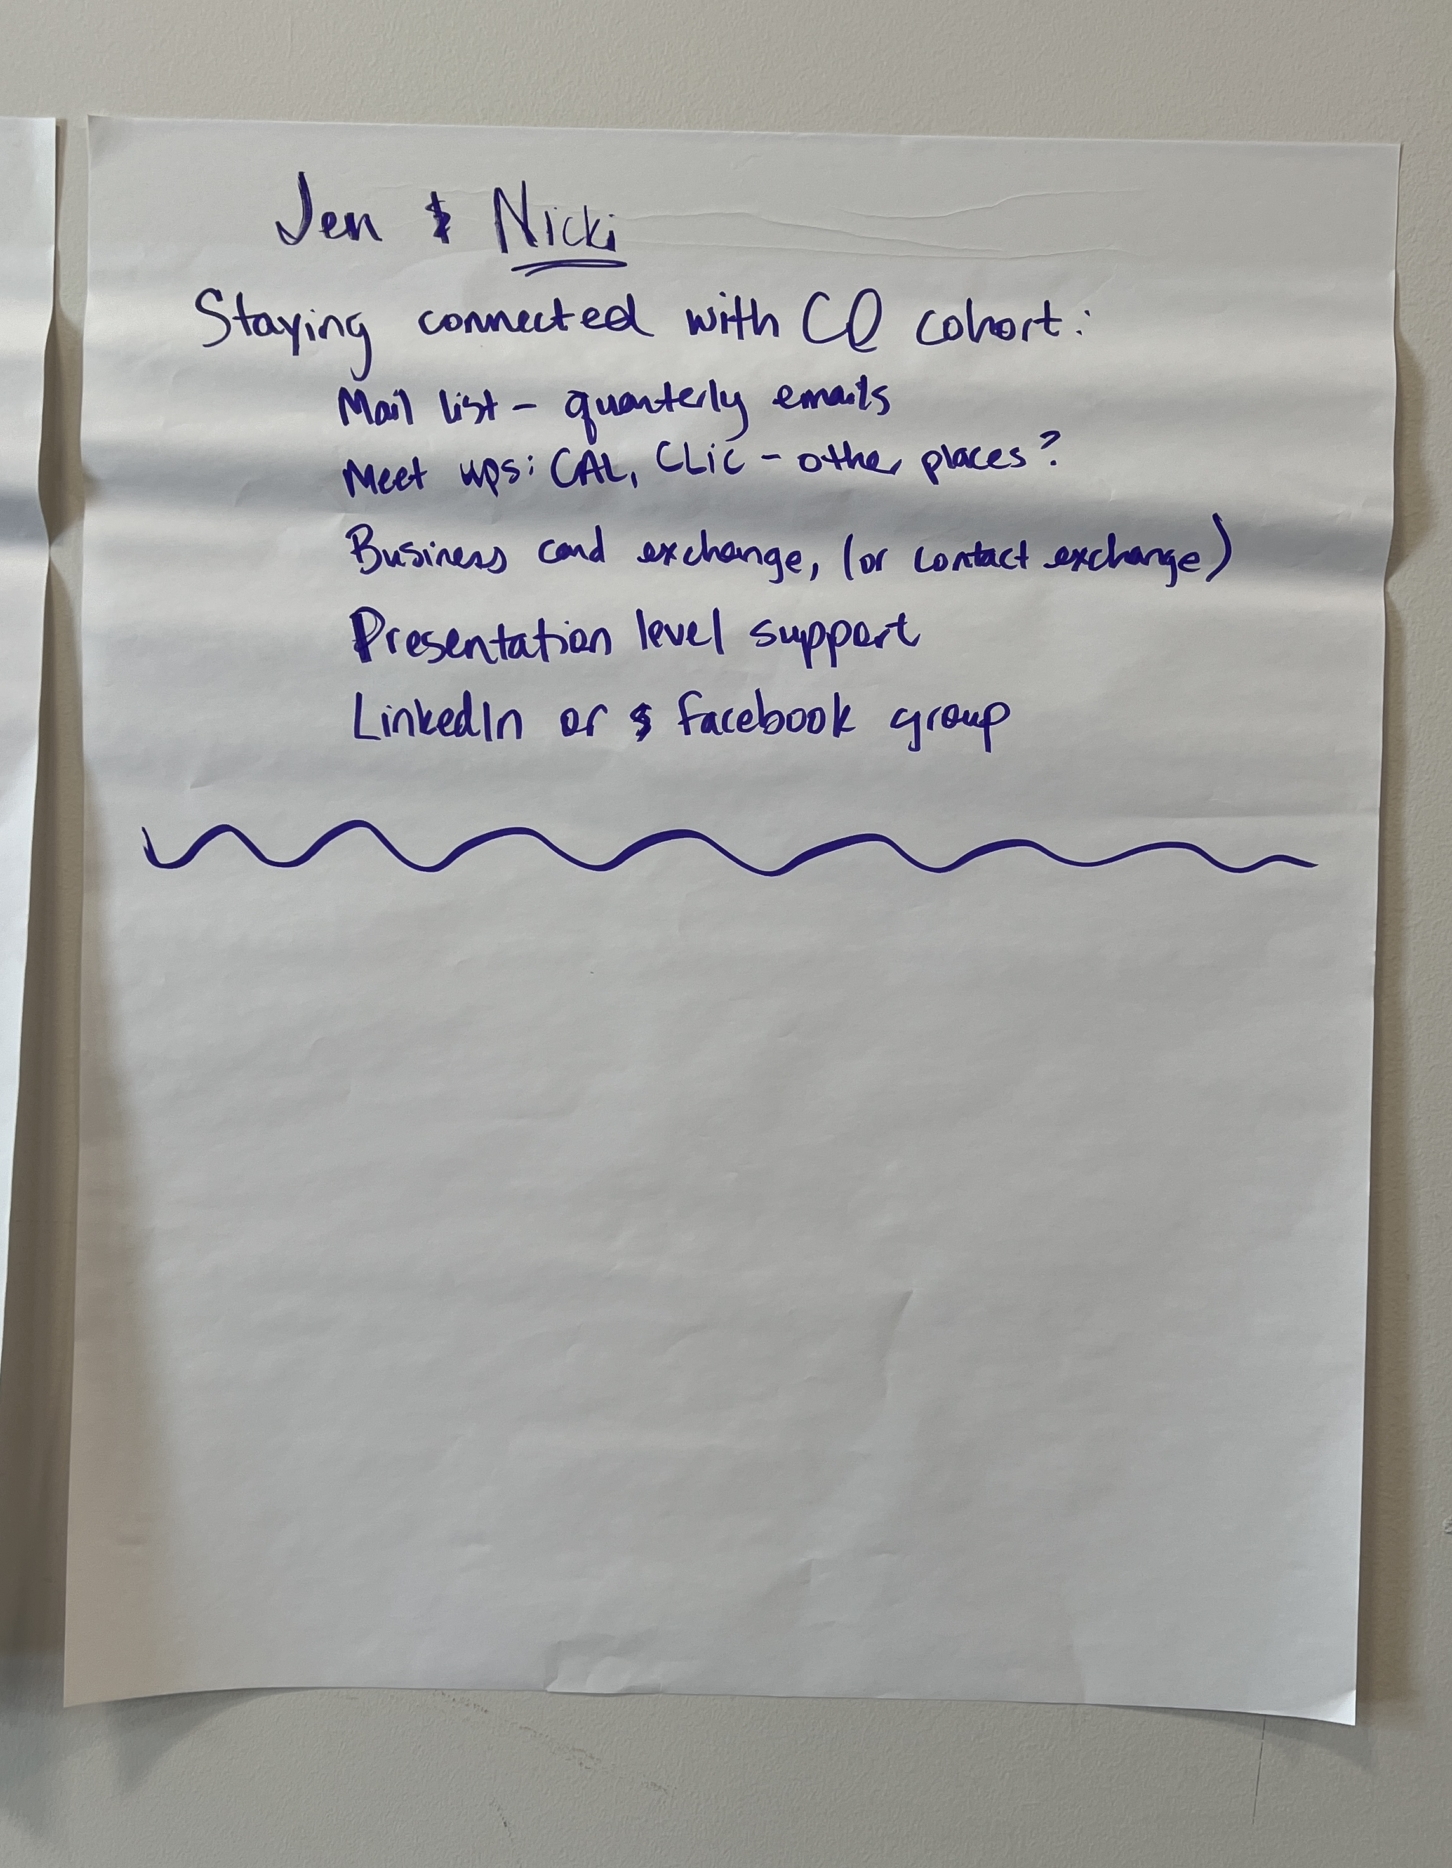 Jen & Nicki
Staying connected with CQ cohort:
Mail list - quarterly emails
Meet ups: CAL, CLiC - other places?
Business card exchange, (or contact exchange)
Presentation level support
LinkedIn or facebook group